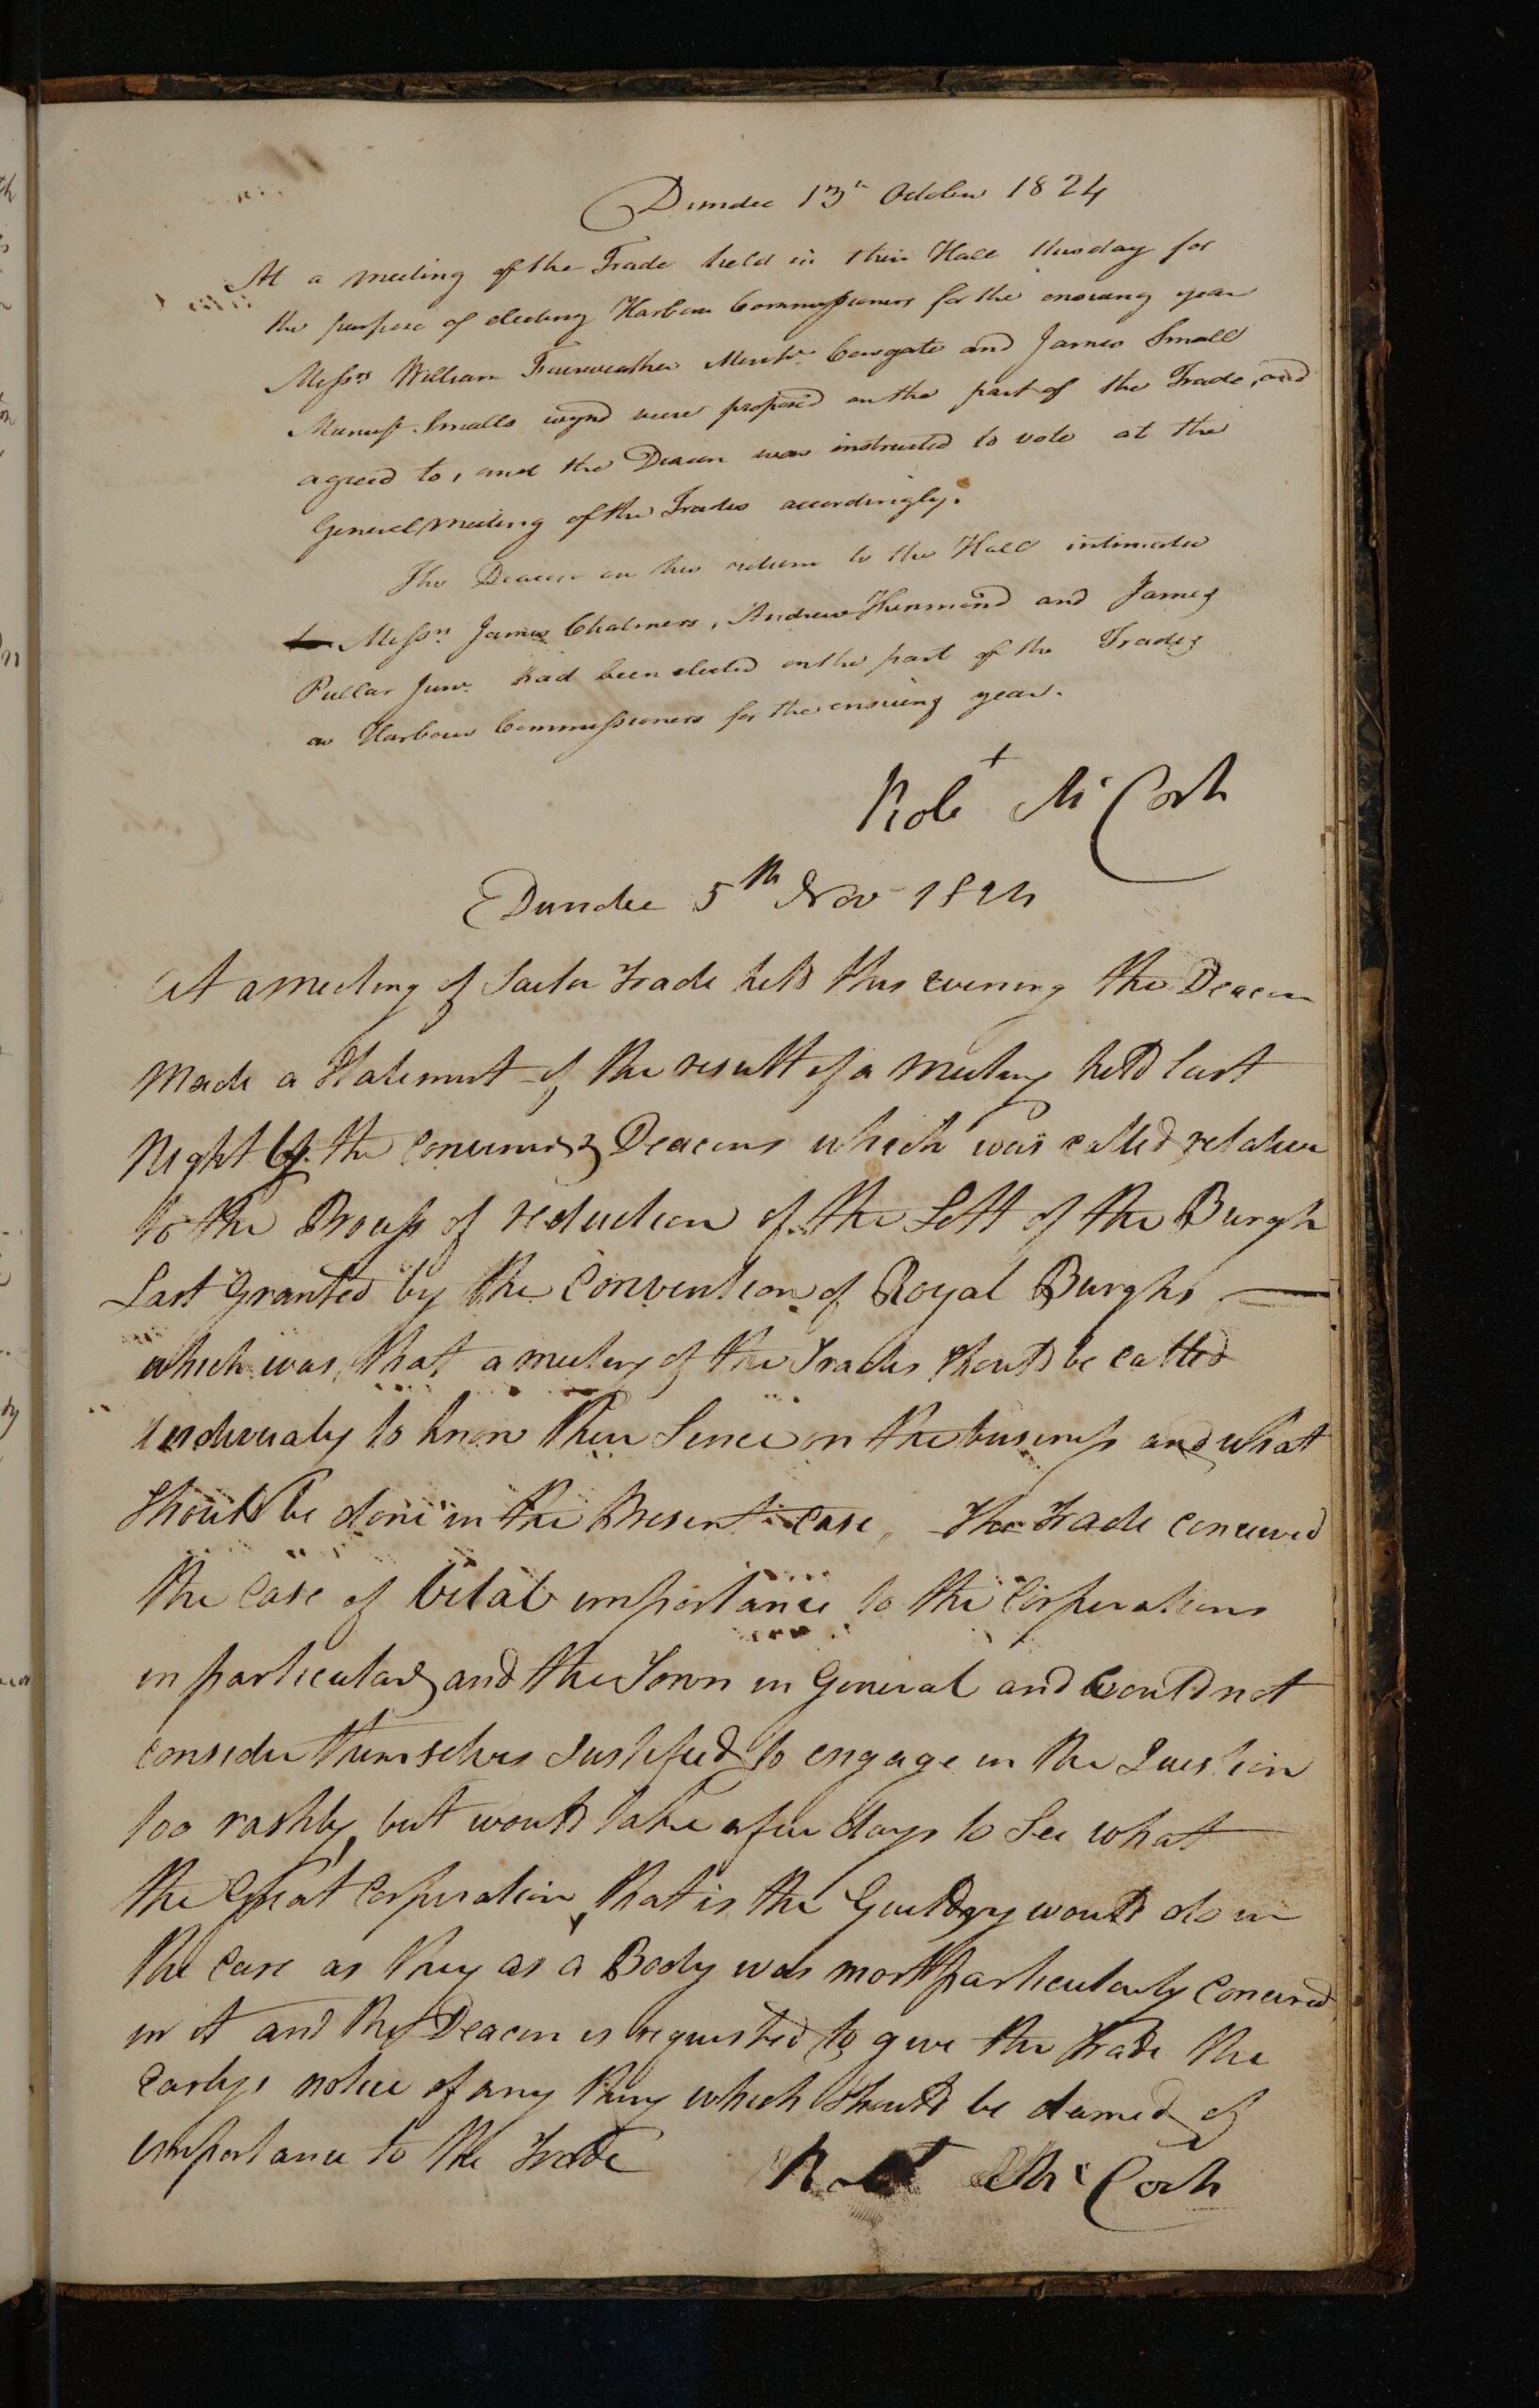 Dundee 13th October 1824
At a meeting of the Trade held in their Hall this day for
the purpose of electing Harbour Commissioners for the ensuing year
Messrs William Fairweather Mercht Cowgate and James Small
Manufr Smalls wynd were proposed on the part of the Trade, and
agreed to, and the Deacon was instructed to vote at the
General meeting of the Trades accordingly.
The Deacon on his return to the Hall intimated
Messrs James Chalmers, Andrew and James
Pullar Junr. had been elected on the part of the Trades
as Harbour Commissioners for the ensuing year.
Robt McCosh
Dundee 5th Nov 1824
At a Meeting of Tailor Trade held this evening the Deacon
Made a Statement of the result of a Meeting held last
Night by the Convener & Deacons which was called relative
to the Process of reduction of the Sett of the Burgh
Last granted by the Convention of Royal Burghs
which was, that a meeting of the Trades should be called
to know their Sence on the business and what
Should be done in the Present case, The Trade conceived
the Case of Vital importance to the Corporations
in particular and the Town in General and Could not
consider themselves Justified to engage in the Question
too rashly, but would take a few days to See what
the Great Corporation, that is the Guildry would do in
the case as they as a Body was most particularly Concerned
in it and the Deacon is requested to give the Trade the
notice of any thing which Should be deemed of
importance to the Trade
Robt McCosh